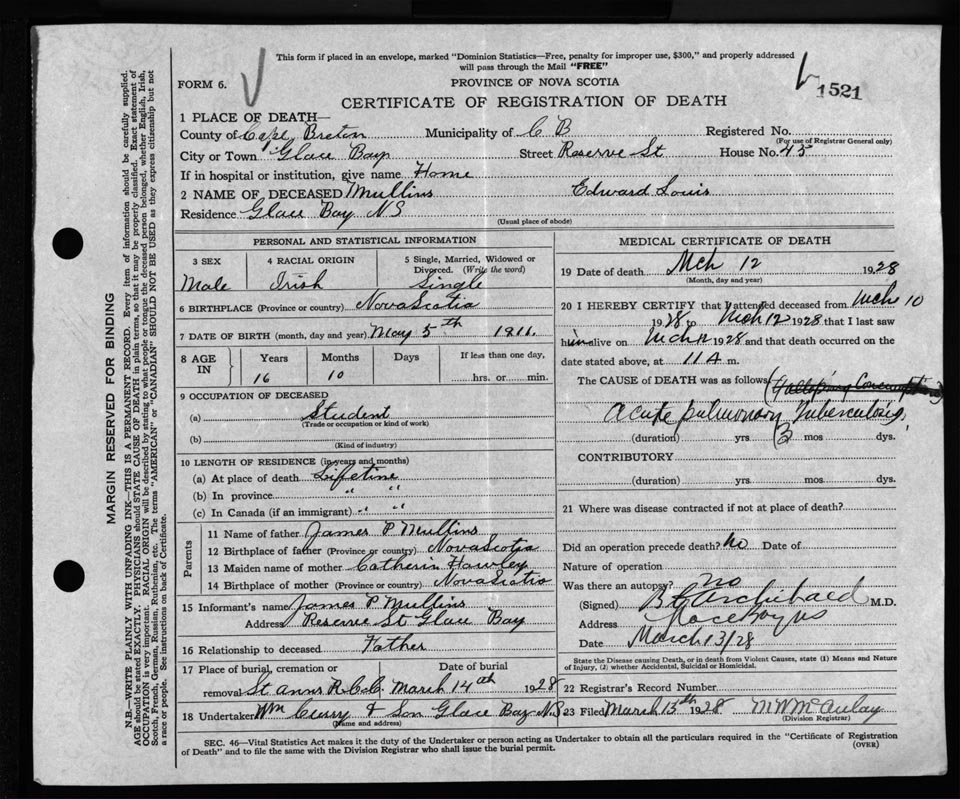 This form if placed in an envelope, marked "Dominion Statistics—Free, penalty for improper use, $300," and properly addressed
will pass through the Mail "FREE"
FORM 6.
PROVINCE OF NOVA SCOTIA
1521
CERTIFICATE OF REGISTRATION OF DEATH
1 PLACE OF DEATH—
County of Cape Breton Municipality of C B Registered No.
(For use of Registrar General only)
City or Town Glace Bay Street Reserve St House No. 45
If in hospital or institution, give name Home
2 NAME OF DECEASED Mullins Edward Louis
Residence Glace Bay NS
(Usual place of abode)
PERSONAL AND STATISTICAL INFORMATION
3 SEX 4 RACIAL ORIGIN 5 Single, Married, Widowed or Divorced. (Write the word)
Male Irish Single
6 BIRTHPLACE (Province or country) Nova Scotia
7 DATE OF BIRTH (month, day and year) May 5th 1911.
8 AGE IN Years Months Days If less than one day,
16 10 hrs. or min.
9 OCCUPATION OF DECEASED
(a) Student
(Trade or occupation or kind of work)
(b)
(Kind of industry)
10 LENGTH OF RESIDENCE (in years and months)
(a) At place of death Lifetime
(b) In province " "
(c) In Canada (if an immigrant) " "
Parents
11 Name of father James P Mullins
12 Birthplace of father (Province or country) Nova Scotia
13 Maiden name of mother Catherin Hawley
14 Birthplace of mother (Province or country) Nova Scotia
15 Informant's name James P Mullins
Address Reserve St Glace Bay
16 Relationship to deceased Father
17 Place of burial, cremation or Date of burial
removal St Anns R.C.C. March 14th 1928
18 Undertaker Wm Curry & Son Glace Bay NS
(Name and address)
MEDICAL CERTIFICATE OF DEATH
19 Date of death Mch 12 1928
(Month, day and year)
20 I HEREBY CERTIFY that I attended deceased from Mch 10
1928 to Mch 12 1928 that I last saw
him alive on Mch 12 1928 and that death occurred on the
date stated above, at 11 A m.
The CAUSE of DEATH was as follows (Galloping Consumption)
Acute pulmonary Tuberculosis,
(duration) yrs (3 mos dys.
CONTRIBUTORY
(duration) yrs. mos. dys.
21 Where was disease contracted if not at place of death?
Did an operation precede death? No Date of
Nature of operation
Was there an autopsy? No
(Signed) Archibald M.D.
Address Glace Bay NS
Date March 13/28
State the Disease causing Death, or in death from Violent Causes, state (1) Means and Nature
of Injury, (2) whether Accidental, Suicidal or Homicidal.
22 Registrar's Record Number
23 Filed March 13th 1928 M W McAulay
(Division Registrar)
SEC. 46—Vital Statistics Act makes it the duty of the Undertaker or person acting as Undertaker to obtain all the particulars required in the "Certificate of Registration
of Death" and to file the same with the Division Registrar who shall issue the burial permit.
(OVER)
MARGIN RESERVED FOR BINDING
N.B.—WRITE PLAINLY WITH UNFADING INK—THIS IS A PERMANENT RECORD. Every item of information should be carefully supplied.
AGE should be stated EXACTLY. PHYSICIANS should STATE CAUSE OF DEATH in plain terms, so that it may be properly classified. Exact statement of
OCCUPATION is very important. RACIAL ORIGIN will be described by stating to what people or tongue the deceased person belonged, whether English, Irish,
Scotch, French, German, Russian, Ruthenian, etc. The terms "AMERICAN" or "CANADIAN" SHOULD NOT BE USED as they express citizenship but not
a race or people. See instructions on back of Certificate.